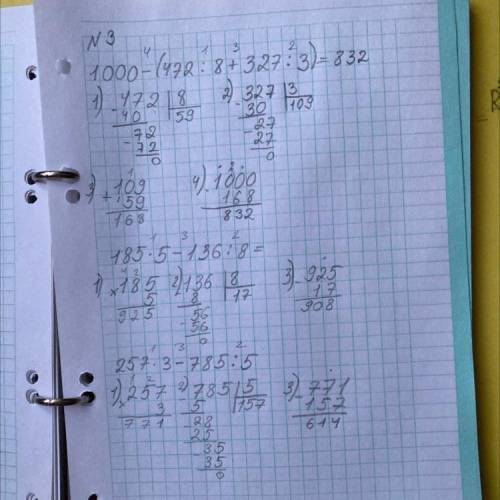 N 3
1000-(472:8+327:3)=832
1) 472 | 8
40 | 59
72
72
0
2) 327 | 3
30 | 109
27
27
0
3) 109
+ 59
168
4) 1000
168
832
185·5-136:8=
1) × 185
5
925
2) 136 | 8
8 | 17
56
56
0
3) 925
17
908
257·3-785:5
1) × 257
3
771
2) 785 | 5
5 | 157
28
25
35
35
0
3) 771
157
614